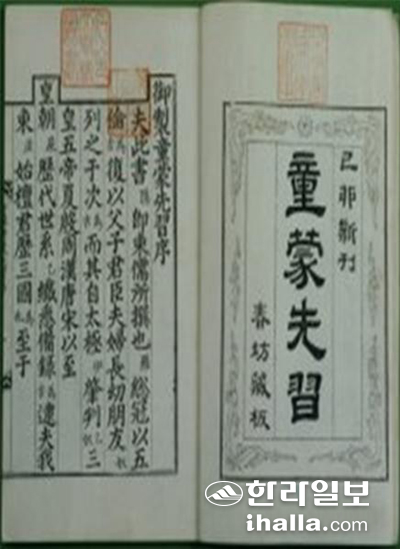 己卯新刊
童蒙先習
春坊藏板
御製童蒙先習序
夫此書即東儒所撰也總冠以五
倫復以父子君臣夫婦長幼朋友
列之于次而其自太極肇判三
皇五帝夏殷周漢唐宋以至
皇朝歷代世系纖悉備錄逮夫我
東始檀君歷三國至于
한라일보
ihalla.com